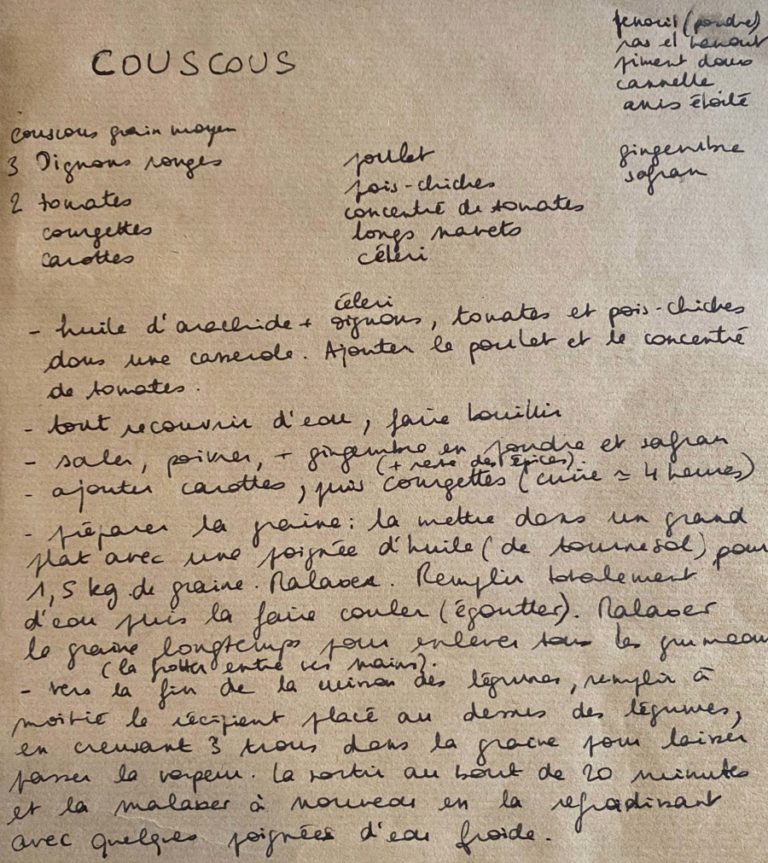 COUSCOUS
fenouil (poudre)
ras el hanout
piment doux
cannelle
anis étoilé
gingembre
safran
couscous grain moyen
3 Oignons rouges
2 tomates
courgettes
carottes
poulet
pois-chiches
concentré de tomates
longs navets
céleri
céleri
- huile d'arachide + oignons, tomates et pois-chiches
dans une casserole. Ajouter le poulet et le concentré
de tomates.
- tout recouvrir d'eau, faire bouillir
- saler, poivrer, + gingembre en poudre et safran
(+ reste des épices)
- ajouter carottes, puis courgettes (cuire ≃ 4 heures)
- préparer la graine : la mettre dans un grand
plat avec une poignée d'huile (de tournesol) pour
1,5 kg de graine. Malaxer. Remplir totalement
d'eau puis la faire couler (égoutter). Malaxer
la graine longtemps pour enlever tous les grumeaux
(la frotter entre ses mains).
- vers la fin de la cuisson des légumes, remplir à
moitié le récipient placé au dessus des légumes,
en creusant 3 trous dans la graine pour laisser
passer la vapeur. La sortir au bout de 20 minutes
et la malaxer à nouveau en la refroidissant
avec quelques poignées d'eau froide.